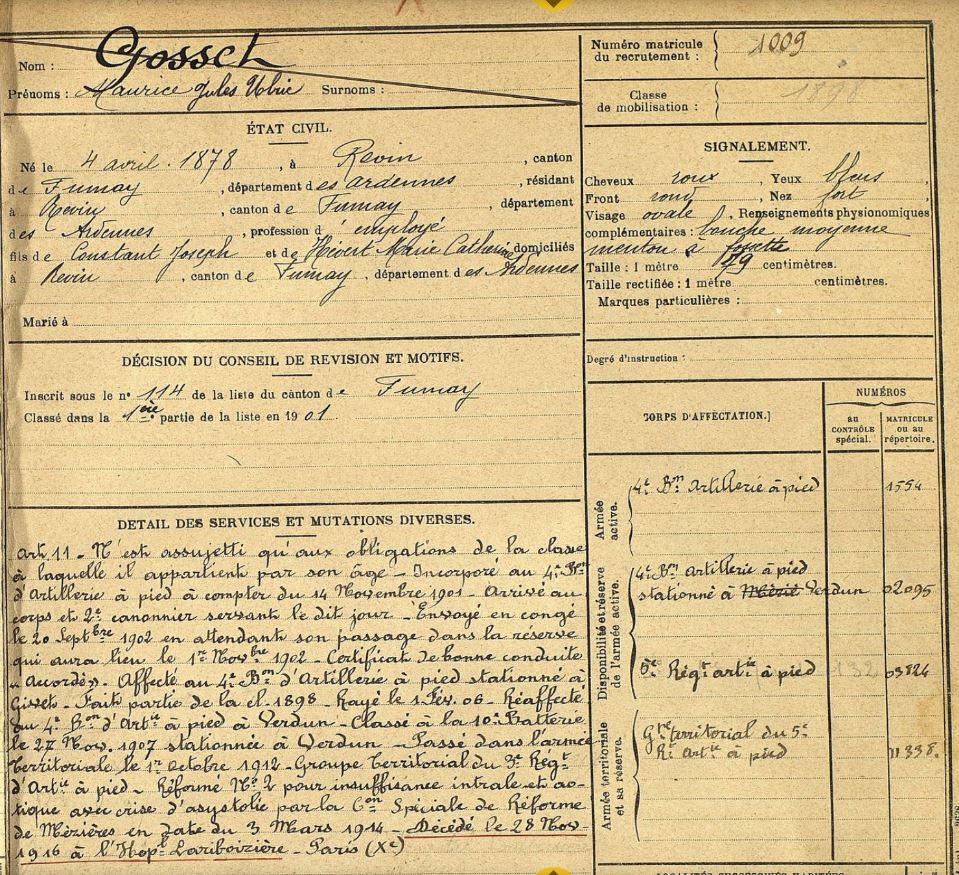 Nom : Gosset
Prénoms : Maurice Jules Surnoms :
Numéro matricule du recrutement : 1009
Classe de mobilisation : 1898
ÉTAT CIVIL.
Né le 4 avril 1878, à Revin, canton
de Fumay, département des Ardennes, résidant
à Revin, canton de Fumay, département
des Ardennes, profession d'employé
fils de Constant Joseph et de Hévert Marie Catherine, domiciliés
à Revin, canton de Fumay, département des Ardennes
Marié à
SIGNALEMENT.
Cheveux roux, Yeux bleus,
Front rond, Nez fort,
Visage ovale, Renseignements physionomiques
complémentaires : bouche moyenne
menton à fossette
Taille : 1 mètre centimètres.
Taille rectifiée : 1 mètre centimètres.
Marques particulières :
Degré d'instruction :
DÉCISION DU CONSEIL DE REVISION ET MOTIFS.
Inscrit sous le nº 114 de la liste du canton de Fumay
Classé dans la 1ère partie de la liste en 1901.
DETAIL DES SERVICES ET MUTATIONS DIVERSES.
Art 11 - N'est assujetti qu'aux obligations de la classe
à laquelle il appartient par son âge - Incorporé au 4e Bon
d'Artillerie à pied à compter du 14 Novembre 1901 - Arrivé au
corps et 2e canonnier servant le dit jour - Envoyé en congé
le 20 Septbre 1902 en attendant son passage dans la réserve
qui aura lieu le 1er Novbre 1902 - Certificat de bonne conduite
« Accordé ». Affecté au 4e Bon d'Artillerie à pied stationné à
Givet - Fait partie de la cl. 1898 - Rayé le 1 Fév. 06 - Réaffecté
au 4e Bon d'Artie à pied à Verdun - Classé à la 10e Batterie
le 27 Nov. 1907 stationnée à Verdun - Passé dans l'armée
territoriale le 1er Octobre 1912 - Groupe territorial du Régt
d'Artie à pied - Réformé No 2 pour insuffisance mitrale et ao-
tique avec crise d'asystolie par la Con Spéciale de Réforme
de Mézières en date du 3 Mars 1914 - Décédé le 28 Nov
1916 à l'Hopl Lariboizière - Paris (Xe)
CORPS D'AFFECTATION.]
NUMÉROS
au CONTRÔLE spécial.
MATRICULE ou au répertoire.
Armée active.
4e Bon Artillerie à pied 1554
Disponibilité et réserve de l'armée active.
4e Bon Artillerie à pied
stationné à Verdun 02095
Régt artie à pied 03824
Armée territoriale et sa réserve.
Gpe territorial du 5e
Rt artie à pied 11338.
LOCALITÉS SUCCESSIVES HABITÉES